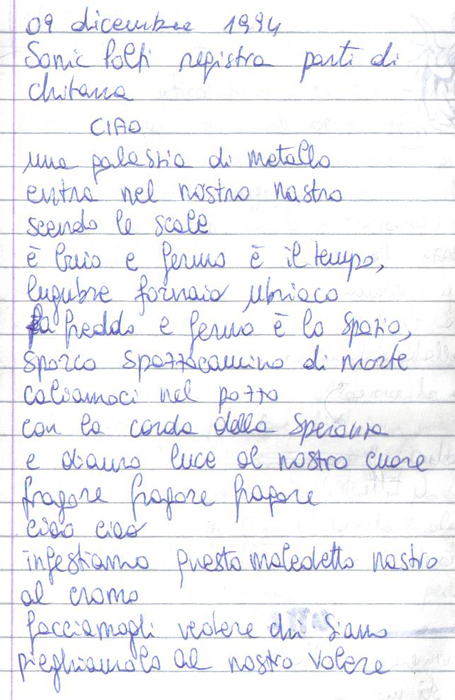 09 dicembre 1994
Sonic Polti registra parti di
chitarra
CIAO
una palestra di metallo
entra nel nostro nastro
scendo le scale
è buio e fermo è il tempo,
lugubre fornaio ubriaco
freddo e fermo è lo spazio,
sporco spazzacamino di morte
caliamoci nel pozzo
con la corda della speranza
e diamo luce al nostro cuore
fragore fragore fragore
ciao ciao
infestiamo questo maledetto nastro
al cromo
facciamogli vedere chi siamo
pieghiamolo al nostro volere